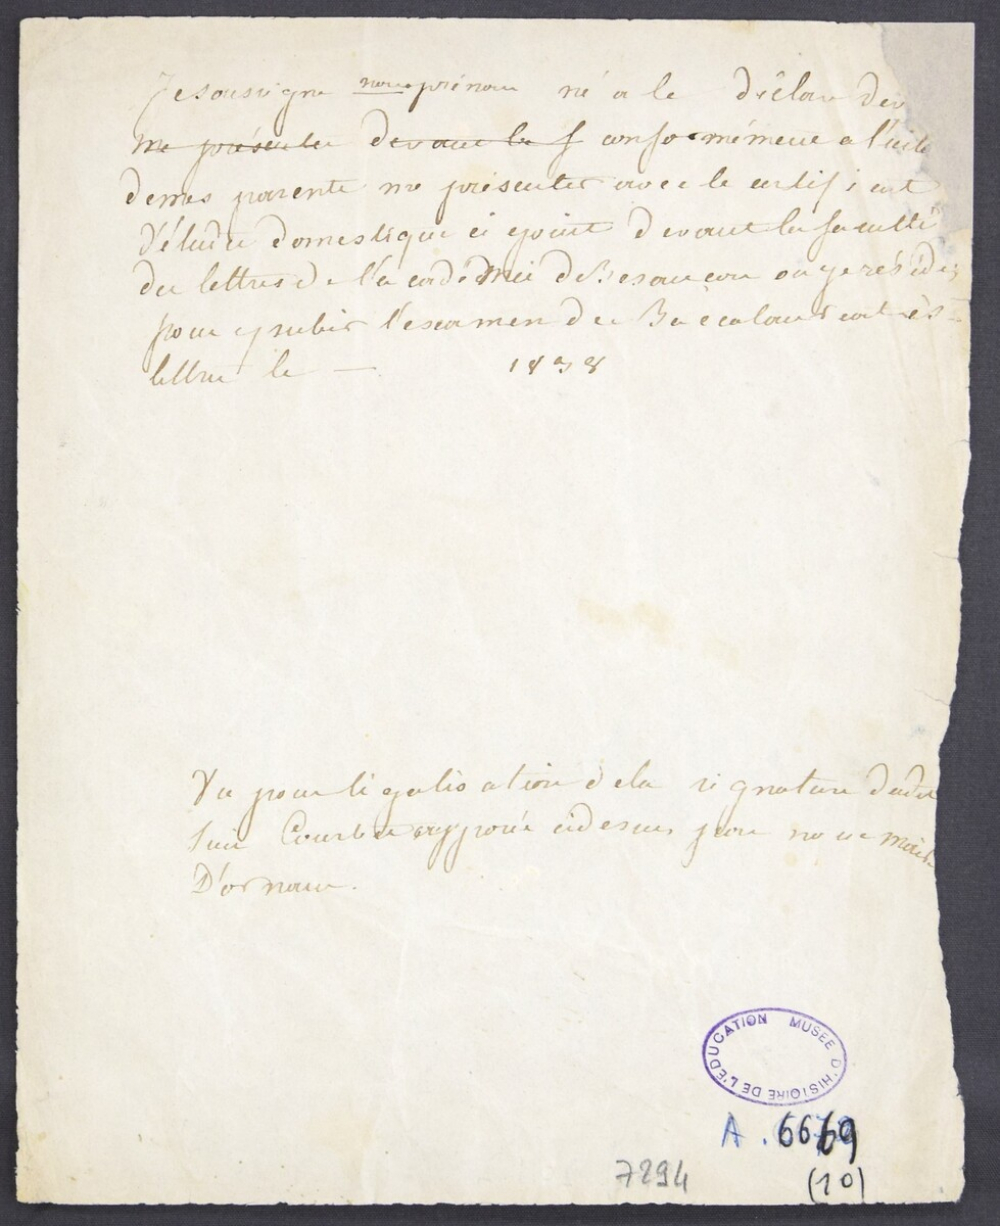 Je sousigne nom prénom né a le déclare des
me présenter devant la f conformémene a l'
demes parente me présenter avec le certificat
d'étude domestique ci joint devant la faculté
des lettres de l'accadémie de Besancon ou je réside
pour y subir l'examen de Baccalaureat ès-
lettre le — 1838
Vu pour légalisation de la signature
Courbet apposée cidesus par nous maire
D'ornans.
MUSEE D'HISTOIRE DE L'EDUCATION
A. 6669
7294 (10)